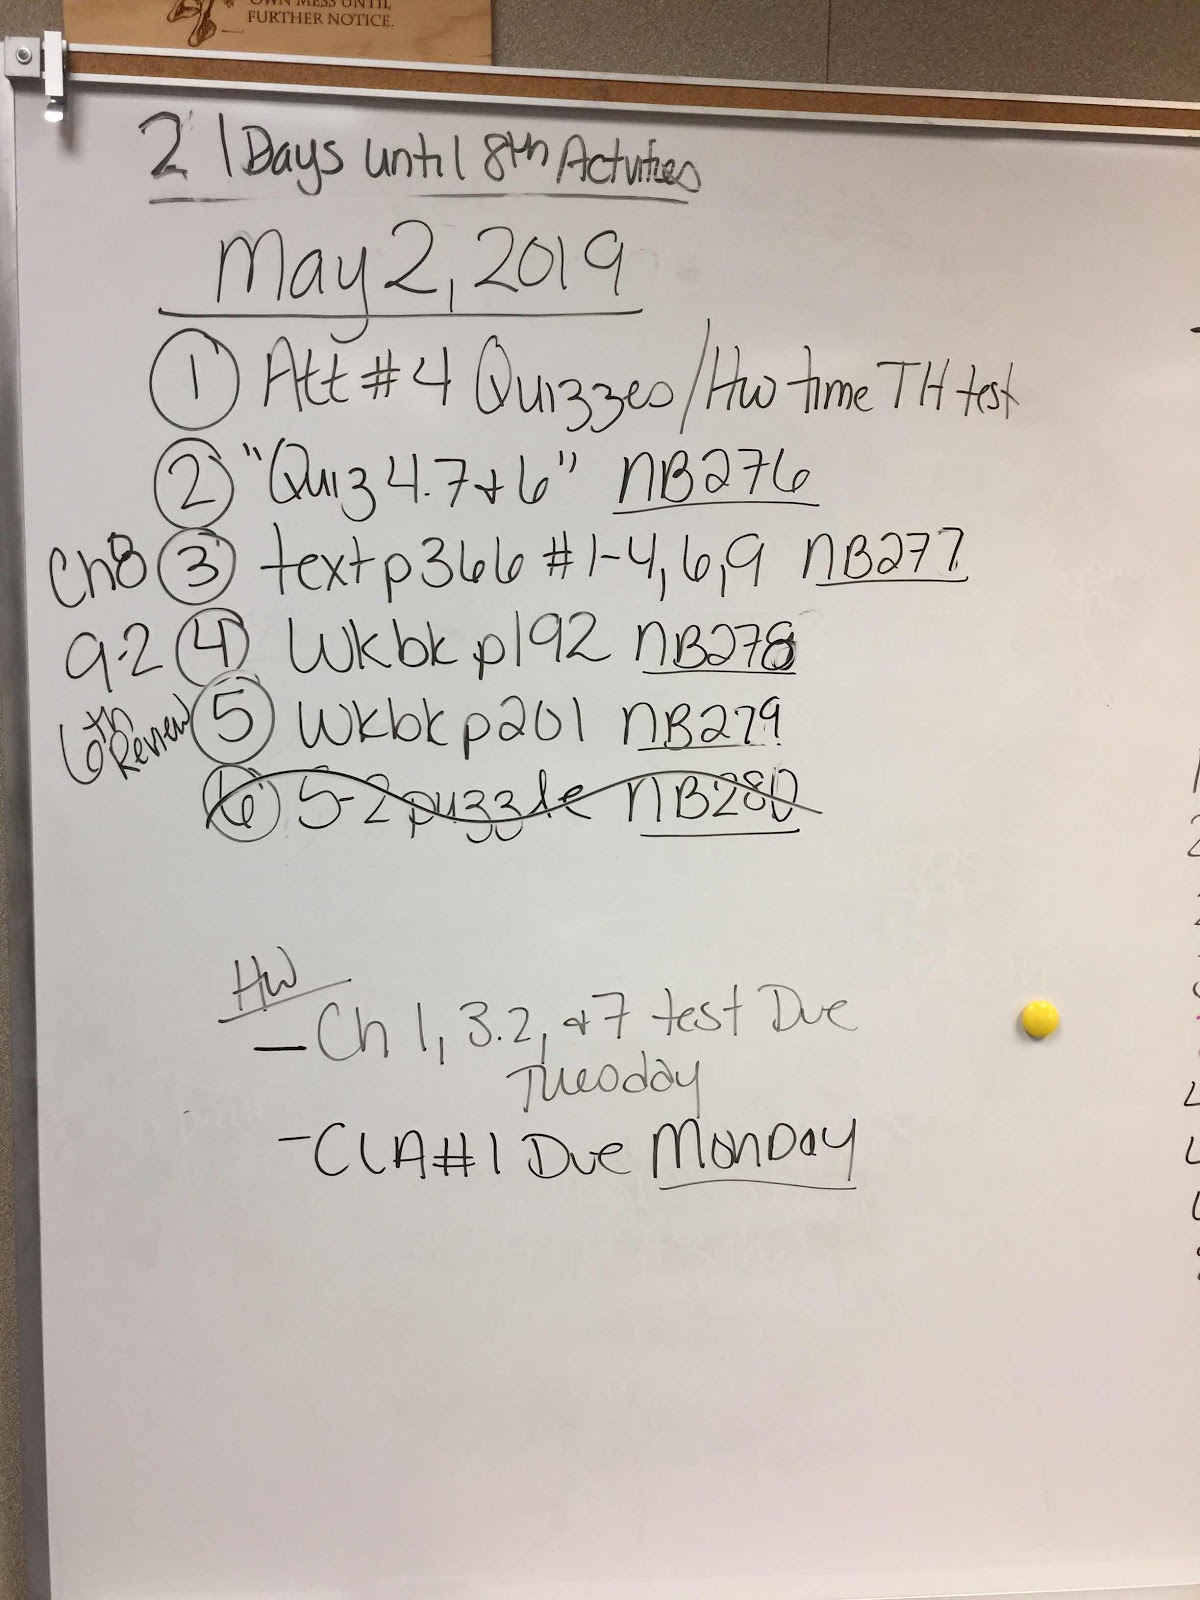 OWN MESS UNTIL
FURTHER NOTICE.
21 Days until 8th Activities
May 2, 2019
① Att #4 Quizzes/HW time TH test
② "Quiz 4.7 & 6" NB276
Ch8 ③ text p366 #1-4,6,9 NB277
9-2 ④ Wkbk p192 NB278
6th Review ⑤ Wkbk p201 NB279
⑥ 5-2 puzzle NB280
HW
- Ch 1, 3.2, & 7 test Due
Tuesday
- CLA #1 Due Monday